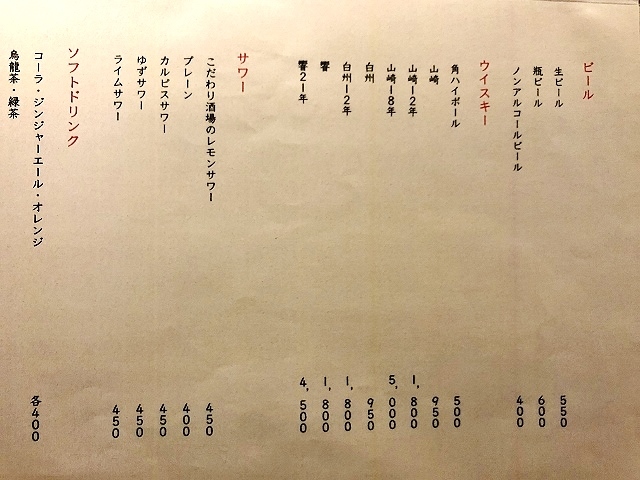 ビール
生ビール 550
瓶ビール 600
ノンアルコールビール 400
ウイスキー
角ハイボール 500
山崎 950
山崎12年 1,800
山崎18年 5,000
白州 950
白州12年 1,800
響 1,800
響21年 4,500
サワー
こだわり酒場のレモンサワー 450
プレーン 400
カルピスサワー 450
ゆずサワー 450
ライムサワー 450
ソフトドリンク
コーラ・ジンジャーエール・オレンジ 各400
烏龍茶・緑茶